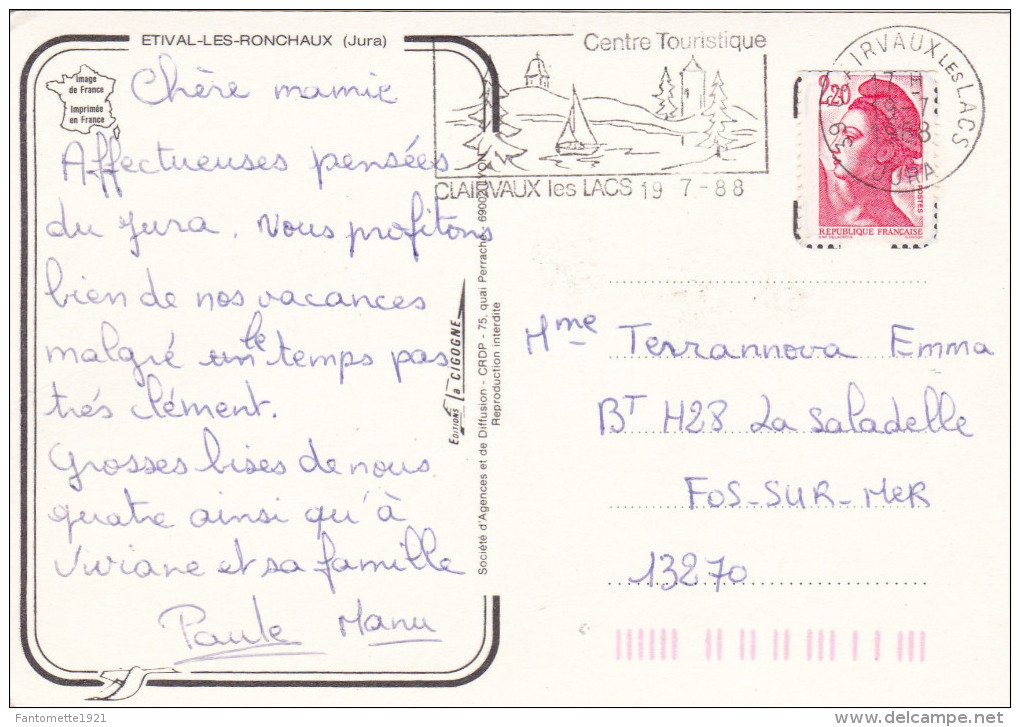 ETIVAL-LES-RONCHAUX (Jura)
Image
de France
Imprimée
en France
Chère mamie
Affectueuses pensées
du Jura. Nous profitons
bien de nos vacances
malgré un le temps pas
très clément.
Grosses bises de nous
quatre ainsi qu'à
Viviane et sa famille
Paule Manu
Centre Touristique
CLAIRVAUX les LACS 19 7-88
CLAIRVAUX LES LACS
JURA
2,20
POSTES
REPUBLIQUE FRANÇAISE
EDITIONS la CIGOGNE
Société d'Agences et de Diffusion - CRDP - 75, quai Perrache, 69002 LYON
Reproduction interdite
Mme Terrannova Emma
BT H28 La Saladelle
FOS-SUR-MER
13270
Fantomette1921
delcampe.net